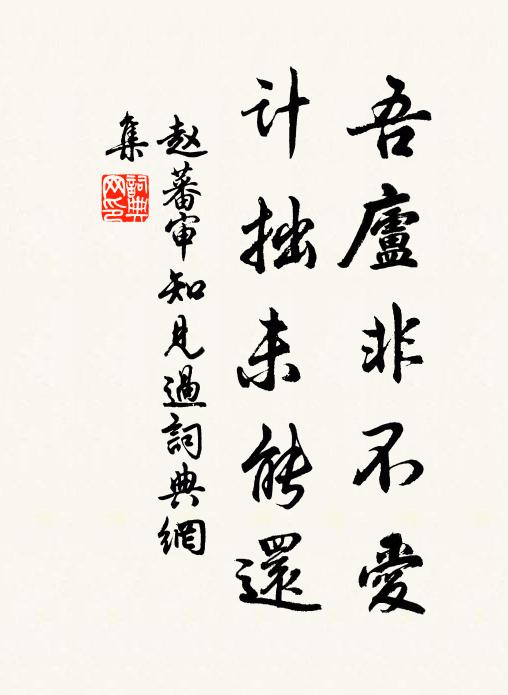 吾廬非不愛
计拙未能還
赵蕃审知見過詞典網
集
詞典
网印